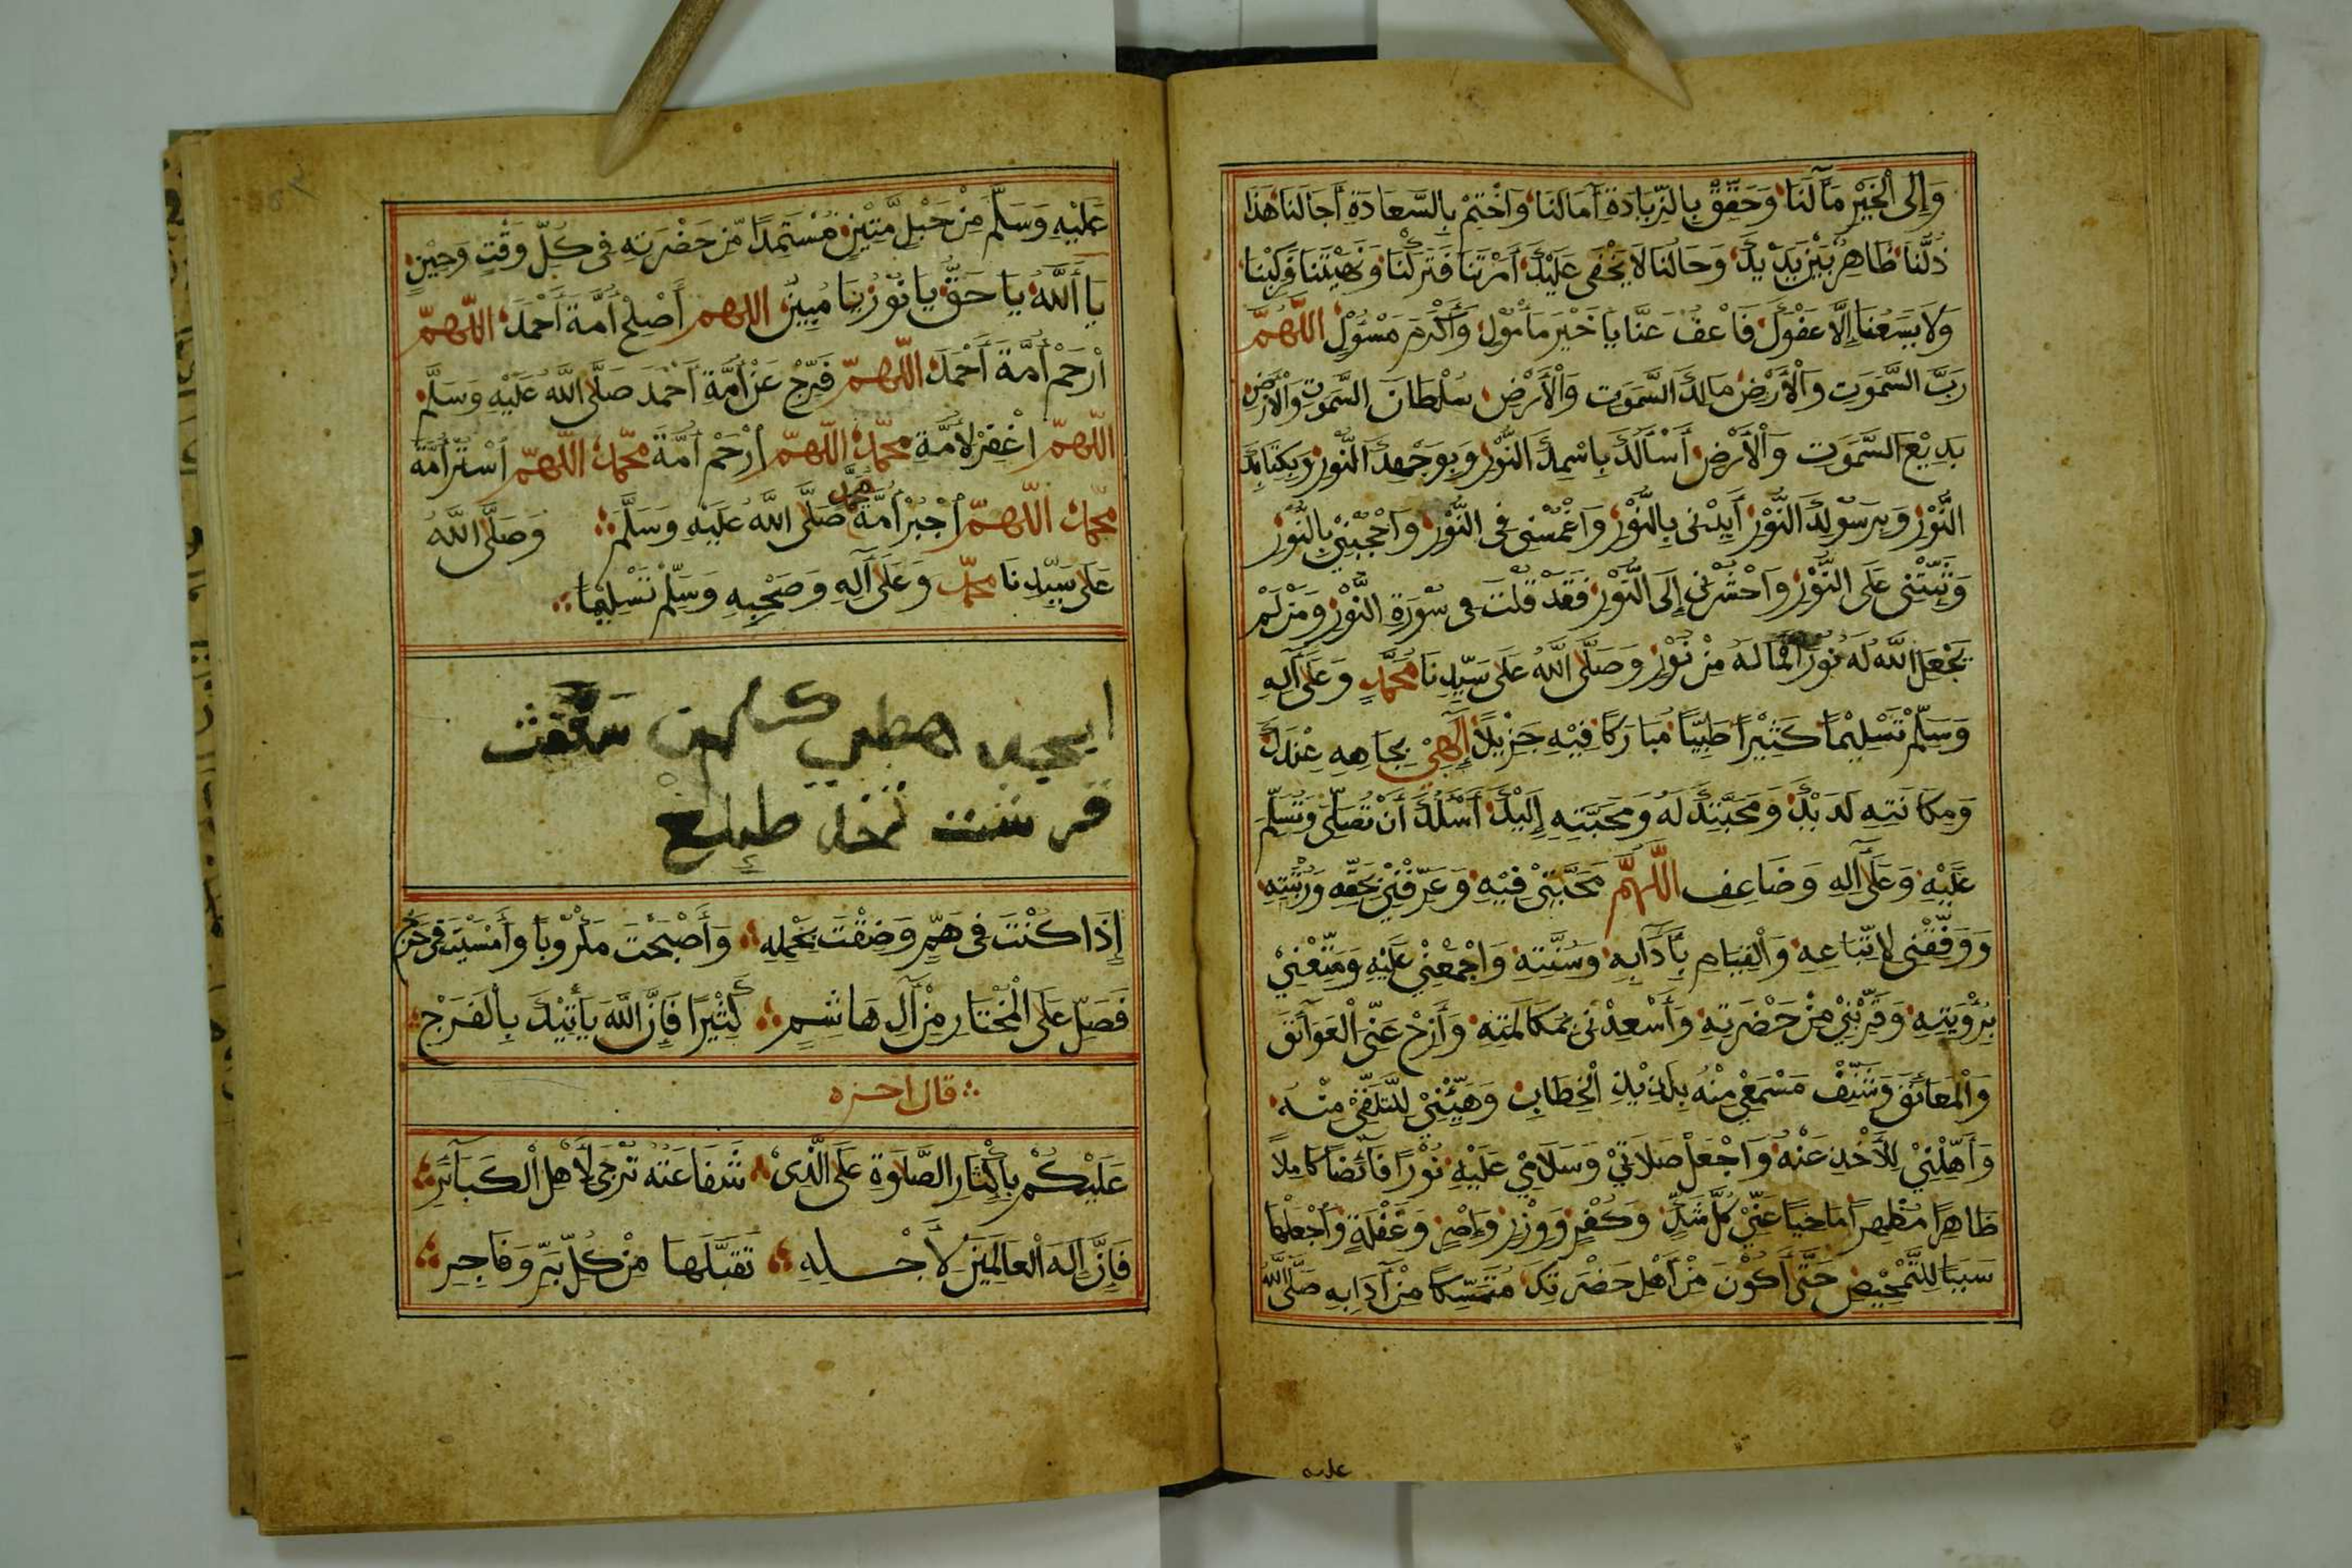 وَإِلَى الْخَيْرِ مَآلَنَا وَحَقِّقْ بِالزِّيَادَةِ آمَالَنَا وَاخْتِمْ بِالسَّعَادَةِ آجَالَنَا هَذَا
ذُلُّنَا ظَاهِرٌ بَيْنَ يَدَيْكَ وَحَالُنَا لَا يَخْفَى عَلَيْكَ أَمَرْتَنَا فَتَرَكْنَا وَنَهَيْتَنَا فَرَكِبْنَا
وَلَا يَسَعُنَا إِلَّا عَفْوُكَ فَاعْفُ عَنَّا يَا خَيْرَ مَأْمُوْلٍ وَأَكْرَمَ مَسْؤُلٍ اللّٰهُمَّ
رَبَّ السَّمٰوٰتِ وَالْأَرْضِ مَالِكَ السَّمٰوٰتِ وَالْأَرْضِ سُلْطَانَ السَّمٰوٰتِ وَالْأَرْضِ
بَدِيْعَ السَّمٰوٰتِ وَالْأَرْضِ أَسْأَلُكَ بِاسْمِكَ النُّوْرِ وَبِوَجْهِكَ النُّوْرِ وَبِكِتَابِكَ
النُّوْرِ وَبِرَسُوْلِكَ النُّوْرِ أَيِّدْنِى بِالنُّوْرِ وَاغْمِسْنِى فِى النُّوْرِ وَاحْجُبْنِيْ بِالنُّوْرِ
وَثَبِّتْنِى عَلَى النُّوْرِ وَاحْشُرْنِى إِلَى النُّوْرِ فَقَدْ قُلْتَ فِى سُوْرَةِ النُّوْرِ وَمَنْ لَمْ
يَجْعَلِ اللّٰهُ لَهُ نُوْرًا فَمَا لَهُ مِنْ نُوْرٍ وَصَلَّى اللّٰهُ عَلَى سَيِّدِنَا مُحَمَّدٍ وَعَلَى آلِهِ
وَسَلَّمْ تَسْلِيْمًا كَثِيْرًا طَيِّبًا مُبَارَكًا فِيْهِ جَزِيْلًا إِلٰهِيْ بِجَاهِهِ عِنْدَكَ
وَمَكَانَتِهِ لَدَيْكَ وَمَحَبَّتِكَ لَهُ وَمَحَبَّتِهِ إِلَيْكَ أَسْئَلُكَ أَنْ تُصَلِّىَ وَتُسَلِّمَ
عَلَيْهِ وَعَلَى آلِهِ وَضَاعِفِ اللّٰهُمَّ مَحَبَّتِيْ فِيْهِ وَعَرِّفْنِيْ بِحَقِّهِ وَرُتْبَتِهِ
وَوَفِّقْنِى لِاتِّبَاعِهِ وَالْقِيَامِ بِآدَابِهِ وَسُنَّتِهِ وَاجْمَعْنِيْ عَلَيْهِ وَمَتِّعْنِيْ
بِرُؤْيَتِهِ وَقَرِّبْنِيْ مِنْ حَضْرَتِهِ وَأَسْعِدْنِى بِمُكَالَمَتِهِ وَأَزِحْ عَنِّى الْعَوَائِقَ
وَالْعَلَائِقَ وَشَنِّفْ مَسْمَعِيْ مِنْهُ بِلَذِيْذِ الْخِطَابِ وَهَيِّئْنِيْ لِلتَّلَقِّيْ مِنْهُ
وَأَهِّلْنِيْ لِلْأَخْذِ عَنْهُ وَاجْعَلْ صَلَاتِيْ وَسَلَامِيْ عَلَيْهِ نُوْرًا فَائِضًا كَامِلًا
طَاهِرًا مُطَهِّرًا مَاحِيًا عَنِّيْ كُلَّ شَكٍّ وَكُفْرٍ وَوِزْرٍ وَإِصْرٍ وَغَفْلَةٍ وَاجْعَلْهَا
سَبَبًا لِلتَّمْحِيْصِ حَتَّى أَكُوْنَ مِنْ أَهْلِ حَضْرَتِكَ مُتَمَسِّكًا مِنْ آدَابِهِ صَلَّى اللّٰهُ
عليه
عَلَيْهِ وَسَلَّمَ مِنْ حَبْلٍ مَّتِيْنٍ مُسْتَمِدًّا مِّنْ حَضْرَتِهِ فِى كُلِّ وَقْتٍ وَحِيْنٍ
يَا أَللّٰهُ يَا حَقُّ يَا نُوْرُ يَا مُبِيْنُ اللّٰهُمَّ أَصْلِحْ أُمَّةَ أَحْمَدَ اللّٰهُمَّ
ارْحَمْ أُمَّةَ أَحْمَدَ اللّٰهُمَّ فَرِّجْ عَنْ أُمَّةِ أَحْمَدَ صَلَّى اللّٰهُ عَلَيْهِ وَسَلَّمَ
اللّٰهُمَّ اغْفِرْ لِأُمَّةِ مُحَمَّدٍ اللّٰهُمَّ ارْحَمْ أُمَّةَ مُحَمَّدٍ اللّٰهُمَّ اسْتُرْ أُمَّةَ
مُحَمَّدٍ اللّٰهُمَّ اجْبُرْ أُمَّةَ مُحَمَّدٍ صَلَّى اللّٰهُ عَلَيْهِ وَسَلَّمَ وَصَلَّى اللّٰهُ
عَلَى سَيِّدِنَا مُحَمَّدٍ وَعَلَى آلِهِ وَصَحْبِهِ وَسَلِّمْ تَسْلِيْمًا
ابجد هطي كلمن سعفث
قرشت ثخذ ظغ
إِذَا كُنْتَ فِى هَمٍّ وَضِقْتَ بِحَمْلِهِ وَأَصْبَحْتَ مَكْرُوْبًا وَأَمْسَيْتَ فِى حَرَجٍ
فَصَلِّ عَلَى الْمُخْتَارِ مِنْ آلِ هَاشِمٍ كَثِيْرًا فَإِنَّ اللّٰهَ يَأْتِيْكَ بِالْفَرَجْ
قال اخره
عَلَيْكُمْ بِإِكْثَارِ الصَّلَوٰةِ عَلَى الَّذِىْ شَفَاعَتُهُ تُرْجَى لِأَهْلِ الْكَبَآئِرِ
فَإِنَّ إِلٰهَ الْعَالَمِيْنَ لِأَجْلِهِ تَقَبَّلَهَا مِنْ كُلِّ بَرٍّ وَفَاجِرِ